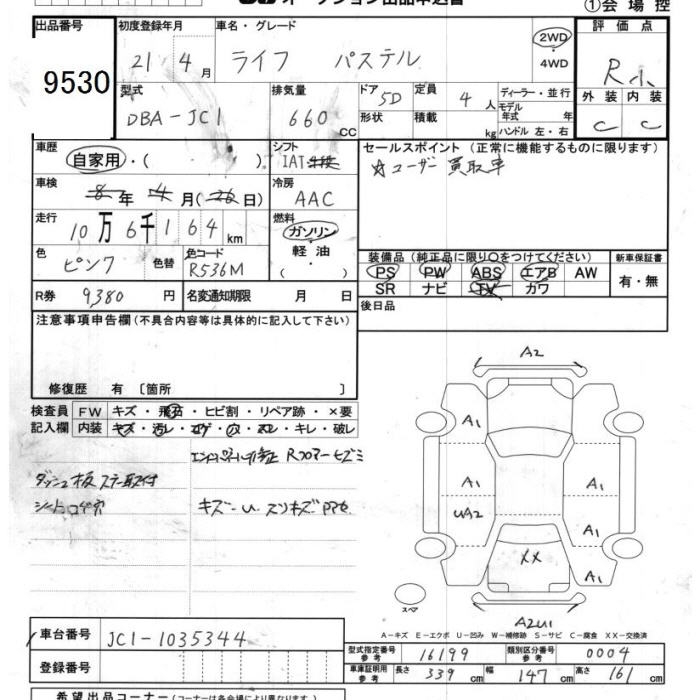 オークション出品申込書
①会場控
出品番号 初度登録年月 車名・グレード 評価点
9530 21 4月 ライフ パステル 2WD・4WD R小
型式 排気量 ドア 定員 ディーラー・並行 外装 内装
DBA-JC1 660 CC 5D 4人 モデル年式 年 C C
形状 積載 kg ハンドル 左・右
車歴 シフト セールスポイント(正常に機能するものに限ります)
自家用・( ) IAT ☆ユーザー買取車
車検 冷房
8年 4月(26日) AAC
走行 燃料
10万6千164km ガソリン・軽油・( )
色 色替 色コード 装備品(純正品に限り○をつけてください) 新車保証書
ピンク R536M PS PW ABS エアB AW 有・無
SR ナビ TV カワ
R券 9,380円 名変通知期限 月 日 後日品
注意事項申告欄(不具合内容等は具体的に記入して下さい)
修復歴 有〔箇所 〕
検査員記入欄 FW キズ・飛石・ヒビ割・リペア跡・×要
内装 キズ・汚レ・コゲ・穴・スレ・キレ・破レ
ダッシュ板 ステー取付
シートコゲ穴 キズ-U スリキズ
A2
A1
A1 A1
UA2 A1
XX
A1
スペア
A2U1
A-キズ E-エクボ U-凹み W-補修跡 S-サビ C-腐食 XX-交換済
車台番号 JC1-1035344
型式指定番号 参考 16199 類別区分番号 参考 0004
登録番号 車庫証明用 参考 長さ 339cm 幅 147cm 高さ 161cm
希望出品コーナー(コーナーは各会場により